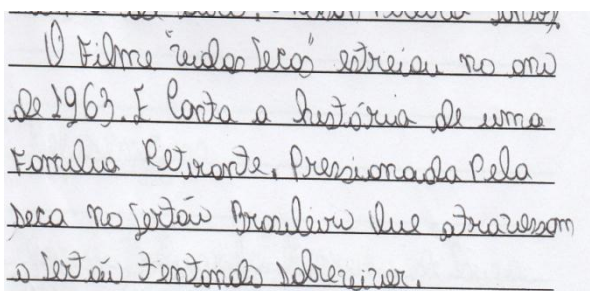 O Filme "vidas secas" estreiou no ano
de 1963. E Conta a história de uma
Familia Retirante, Pressionada Pela
seca no sertão Brasileiro Que atravessam
o sertão Tentando sobreviver.